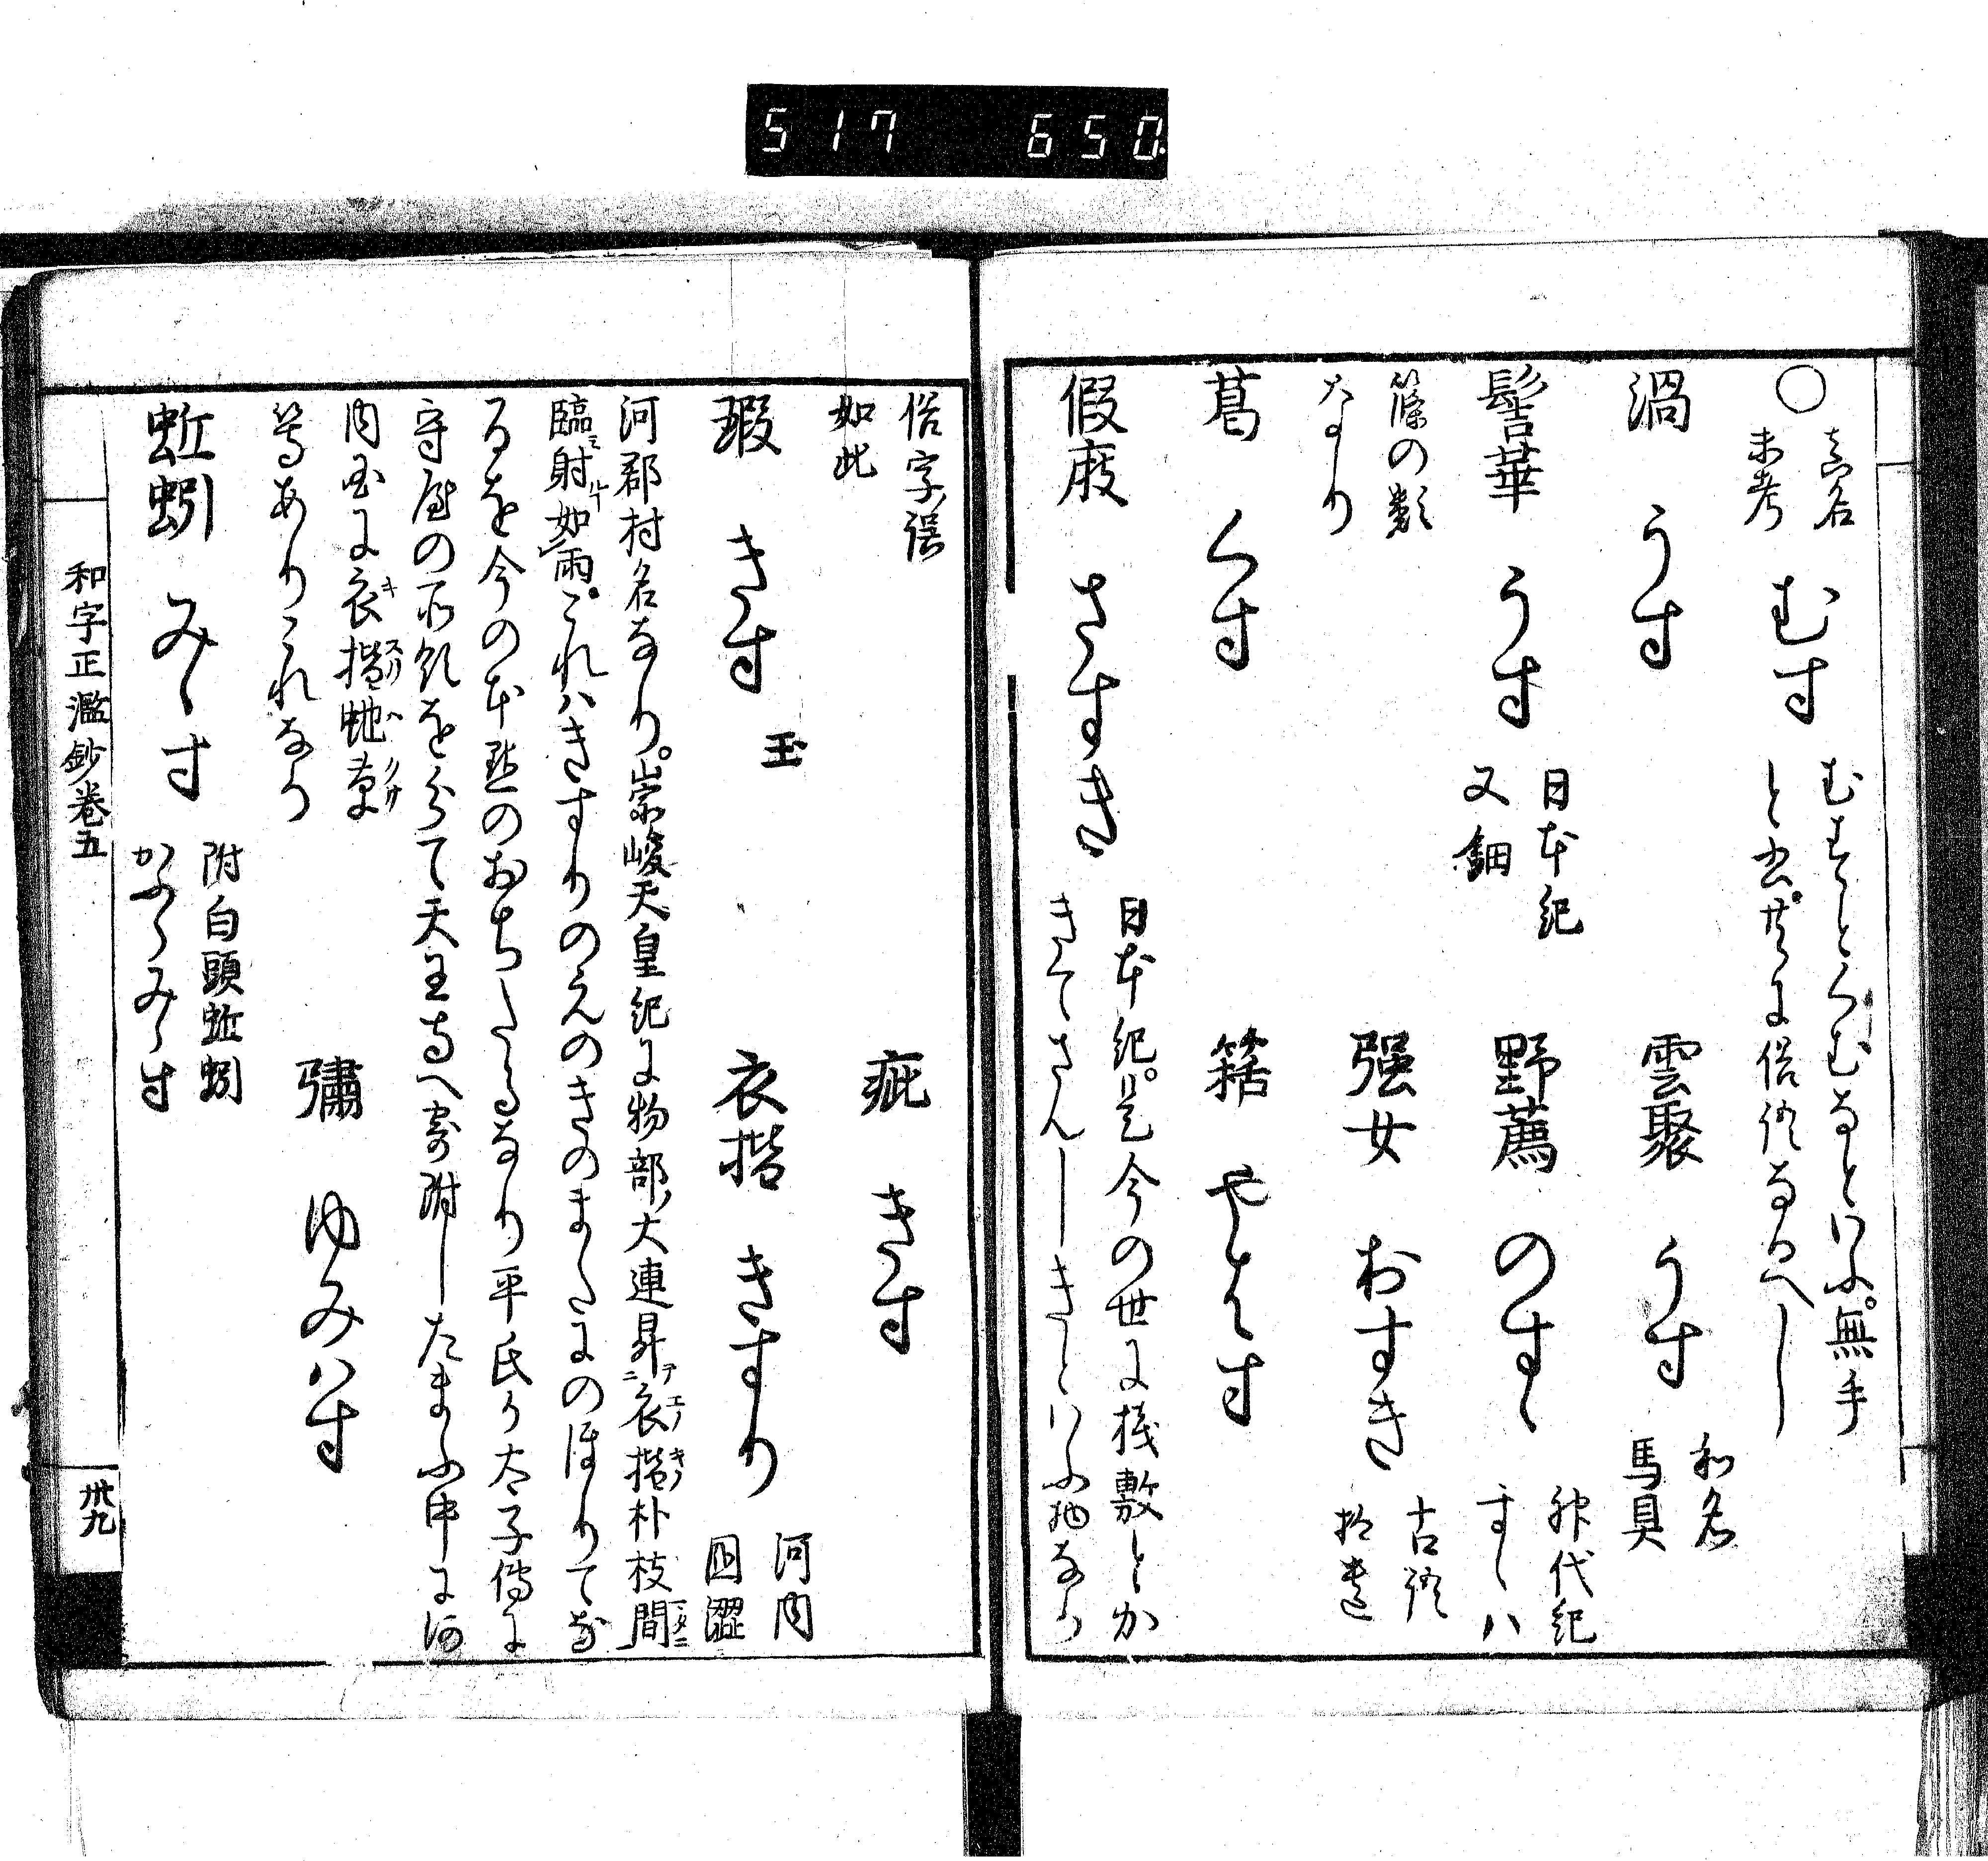 517 650
○ 真名
未考
むす
むすとくむなといふ。無手
と云。共に俗語なるへし
渦 うす
雲聚 うす 和名
馬具
髻華 うす 日本紀
又鈿
野薦 のすゝ 神代紀
すゝハ
篠の類
なり
强女 おすき 古語
拾遺
葛 くす
䇢 やはす
假庪 さすき 日本紀。是今の世に棧敷とか
きてさんしきといふ物なり
俗字誤
如此
疵 きす
瑕 きす 玉
衣揩 きすり 河内
囙澀
河郡村名なり。崇峻天皇紀に物部大連昇衣揩朴枝間
臨射如雨。これハきすりのえのきのまたにのほりてな
るを今の本點のおちたるなり平氏か太子傳に
守屋の所領を分て天王寺へ寄附したまふ中に河
内国に衣揩虵草
等ありこれなり
彇 ゆみハす
蚯蚓 みゝす 附白頭蚯蚓
かふらみゝす
和字正濫鈔巻五
卅九